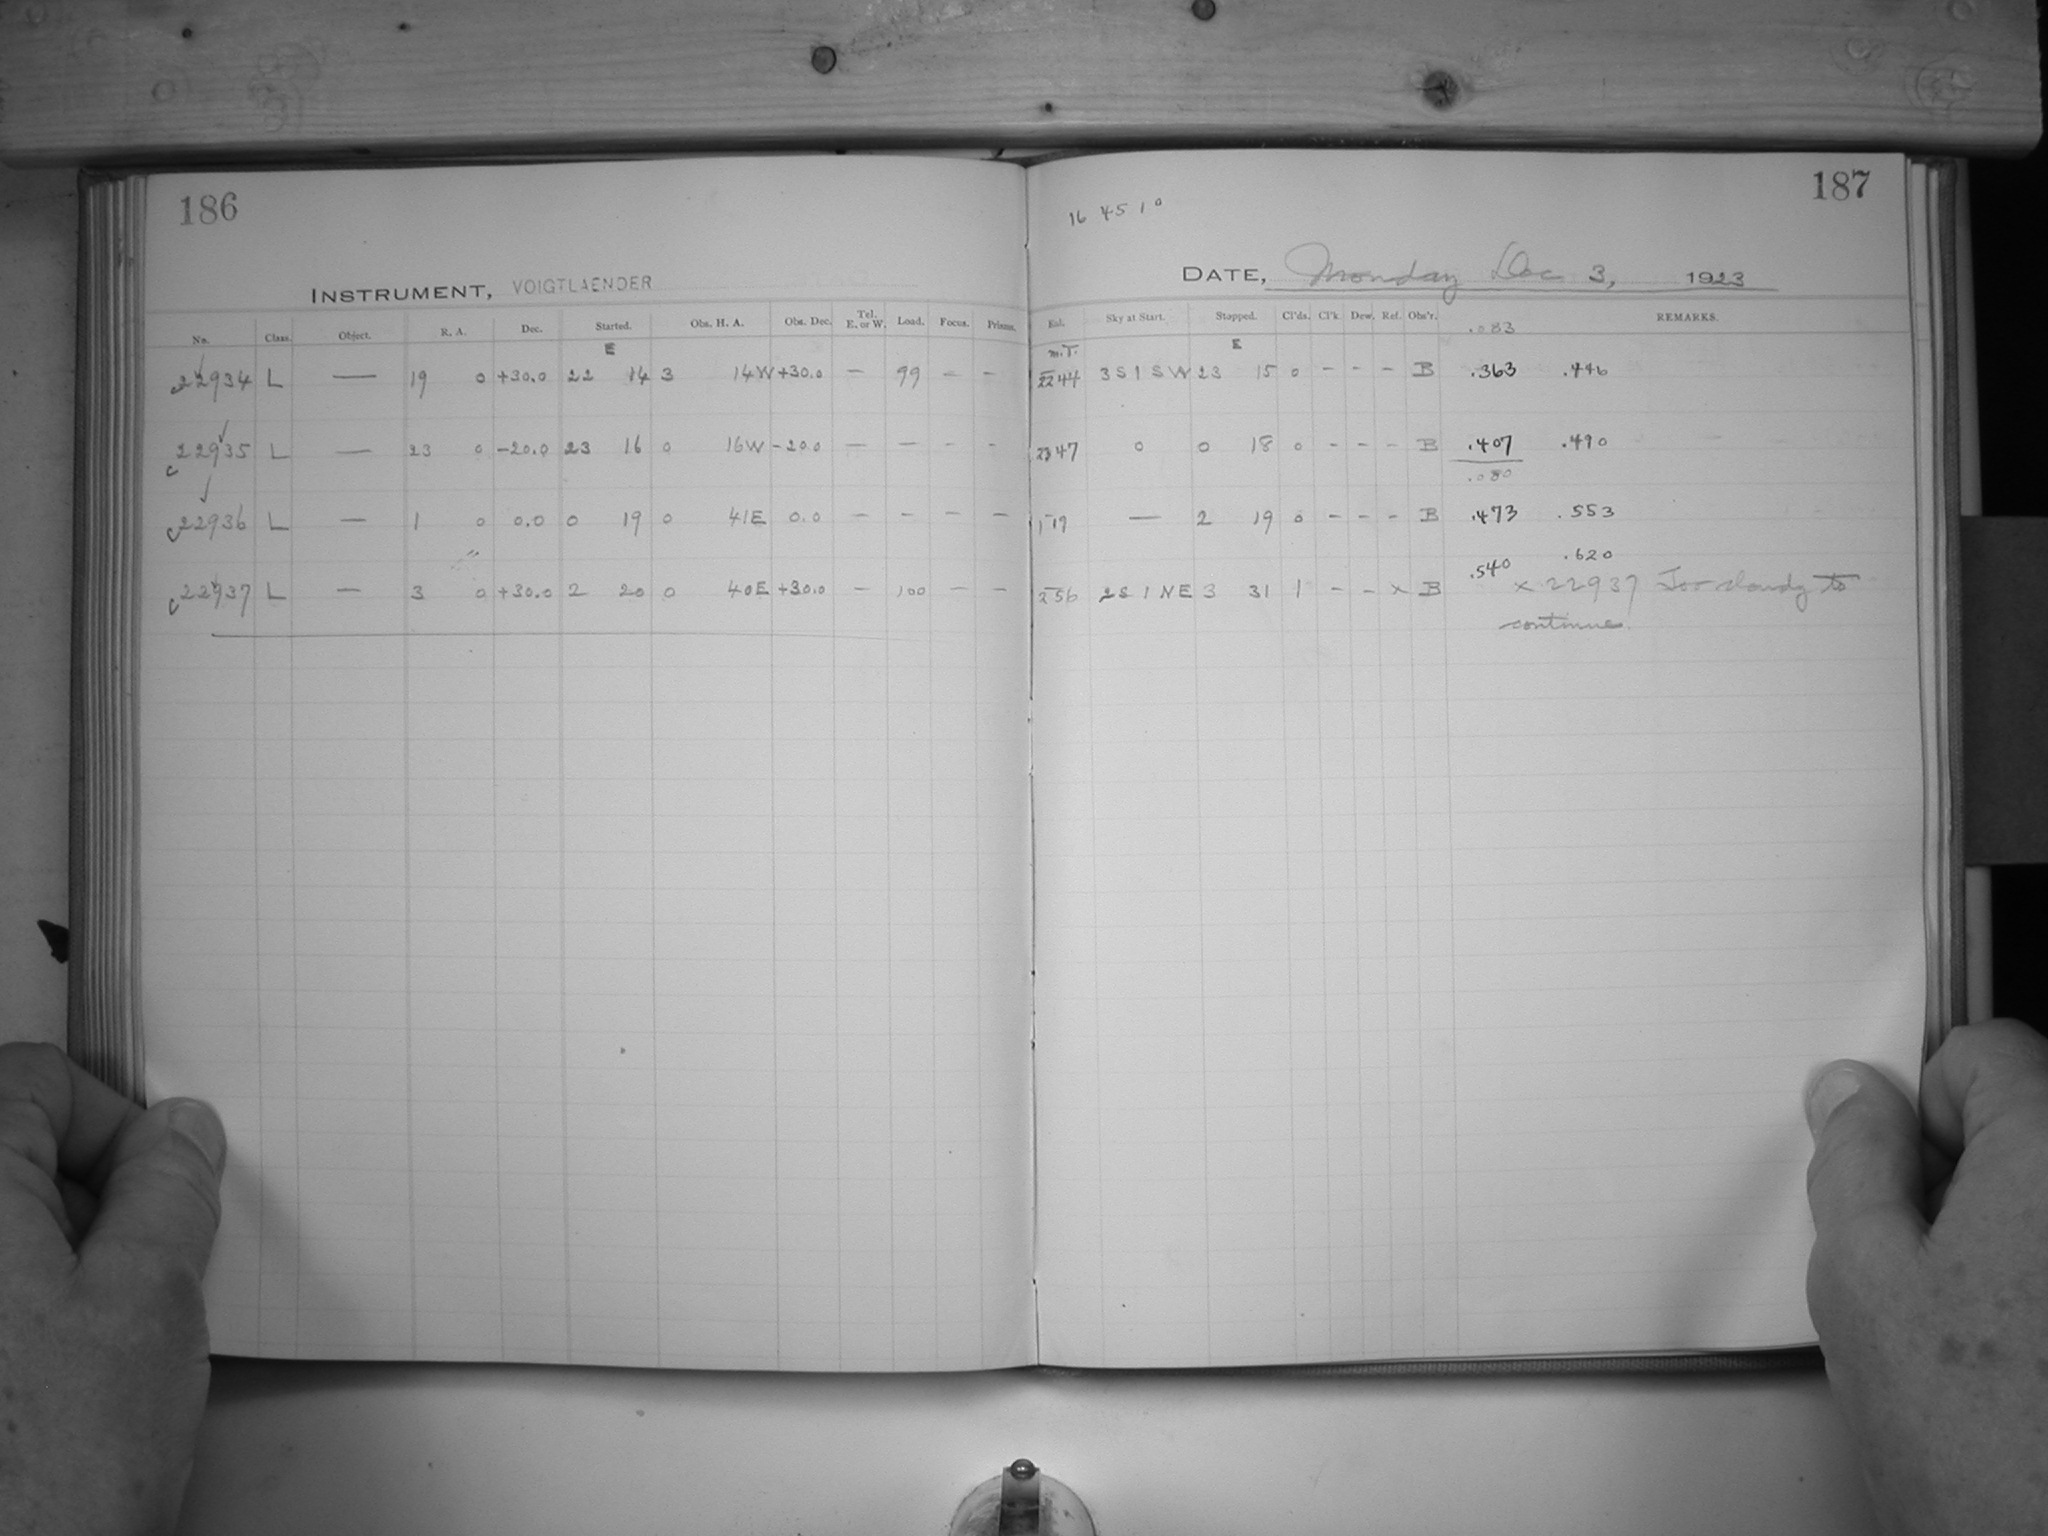 186
INSTRUMENT, VOIGTLAENDER
No. Class. Object. R. A. Dec. Started. Obs. H. A. Obs. Dec. Tel. E. or W. Load. Focus. Prisms.
E
c22934 L — 19 0 +30.0 22 14 3 14W +30.0 — 99 – –
c22935 L — 23 0 -20.0 23 16 0 16W -20.0 — — – -
c22936 L — 1 0 0.0 0 19 0 41E 0.0 — — — —
c22937 L — 3 0 +30.0 2 20 0 40E +30.0 — 100 — —
187
16 45 10
DATE, Monday Dec 3, 1923
Sky at Start. Stopped. Cl'ds. Cl'k. Dew. Ref. Obs'r. REMARKS.
.083
m.T. E
22 44 3 S 1 SW 23 15 0 - - - B .363 .446
23 47 0 0 18 0 - - - B .407 .490
.080
1 19 — 2 19 0 - - - B .473 .553
2 56 2 S 1 NE 3 31 1 - - x B .540 .620
x 22937 Too cloudy to
continue.